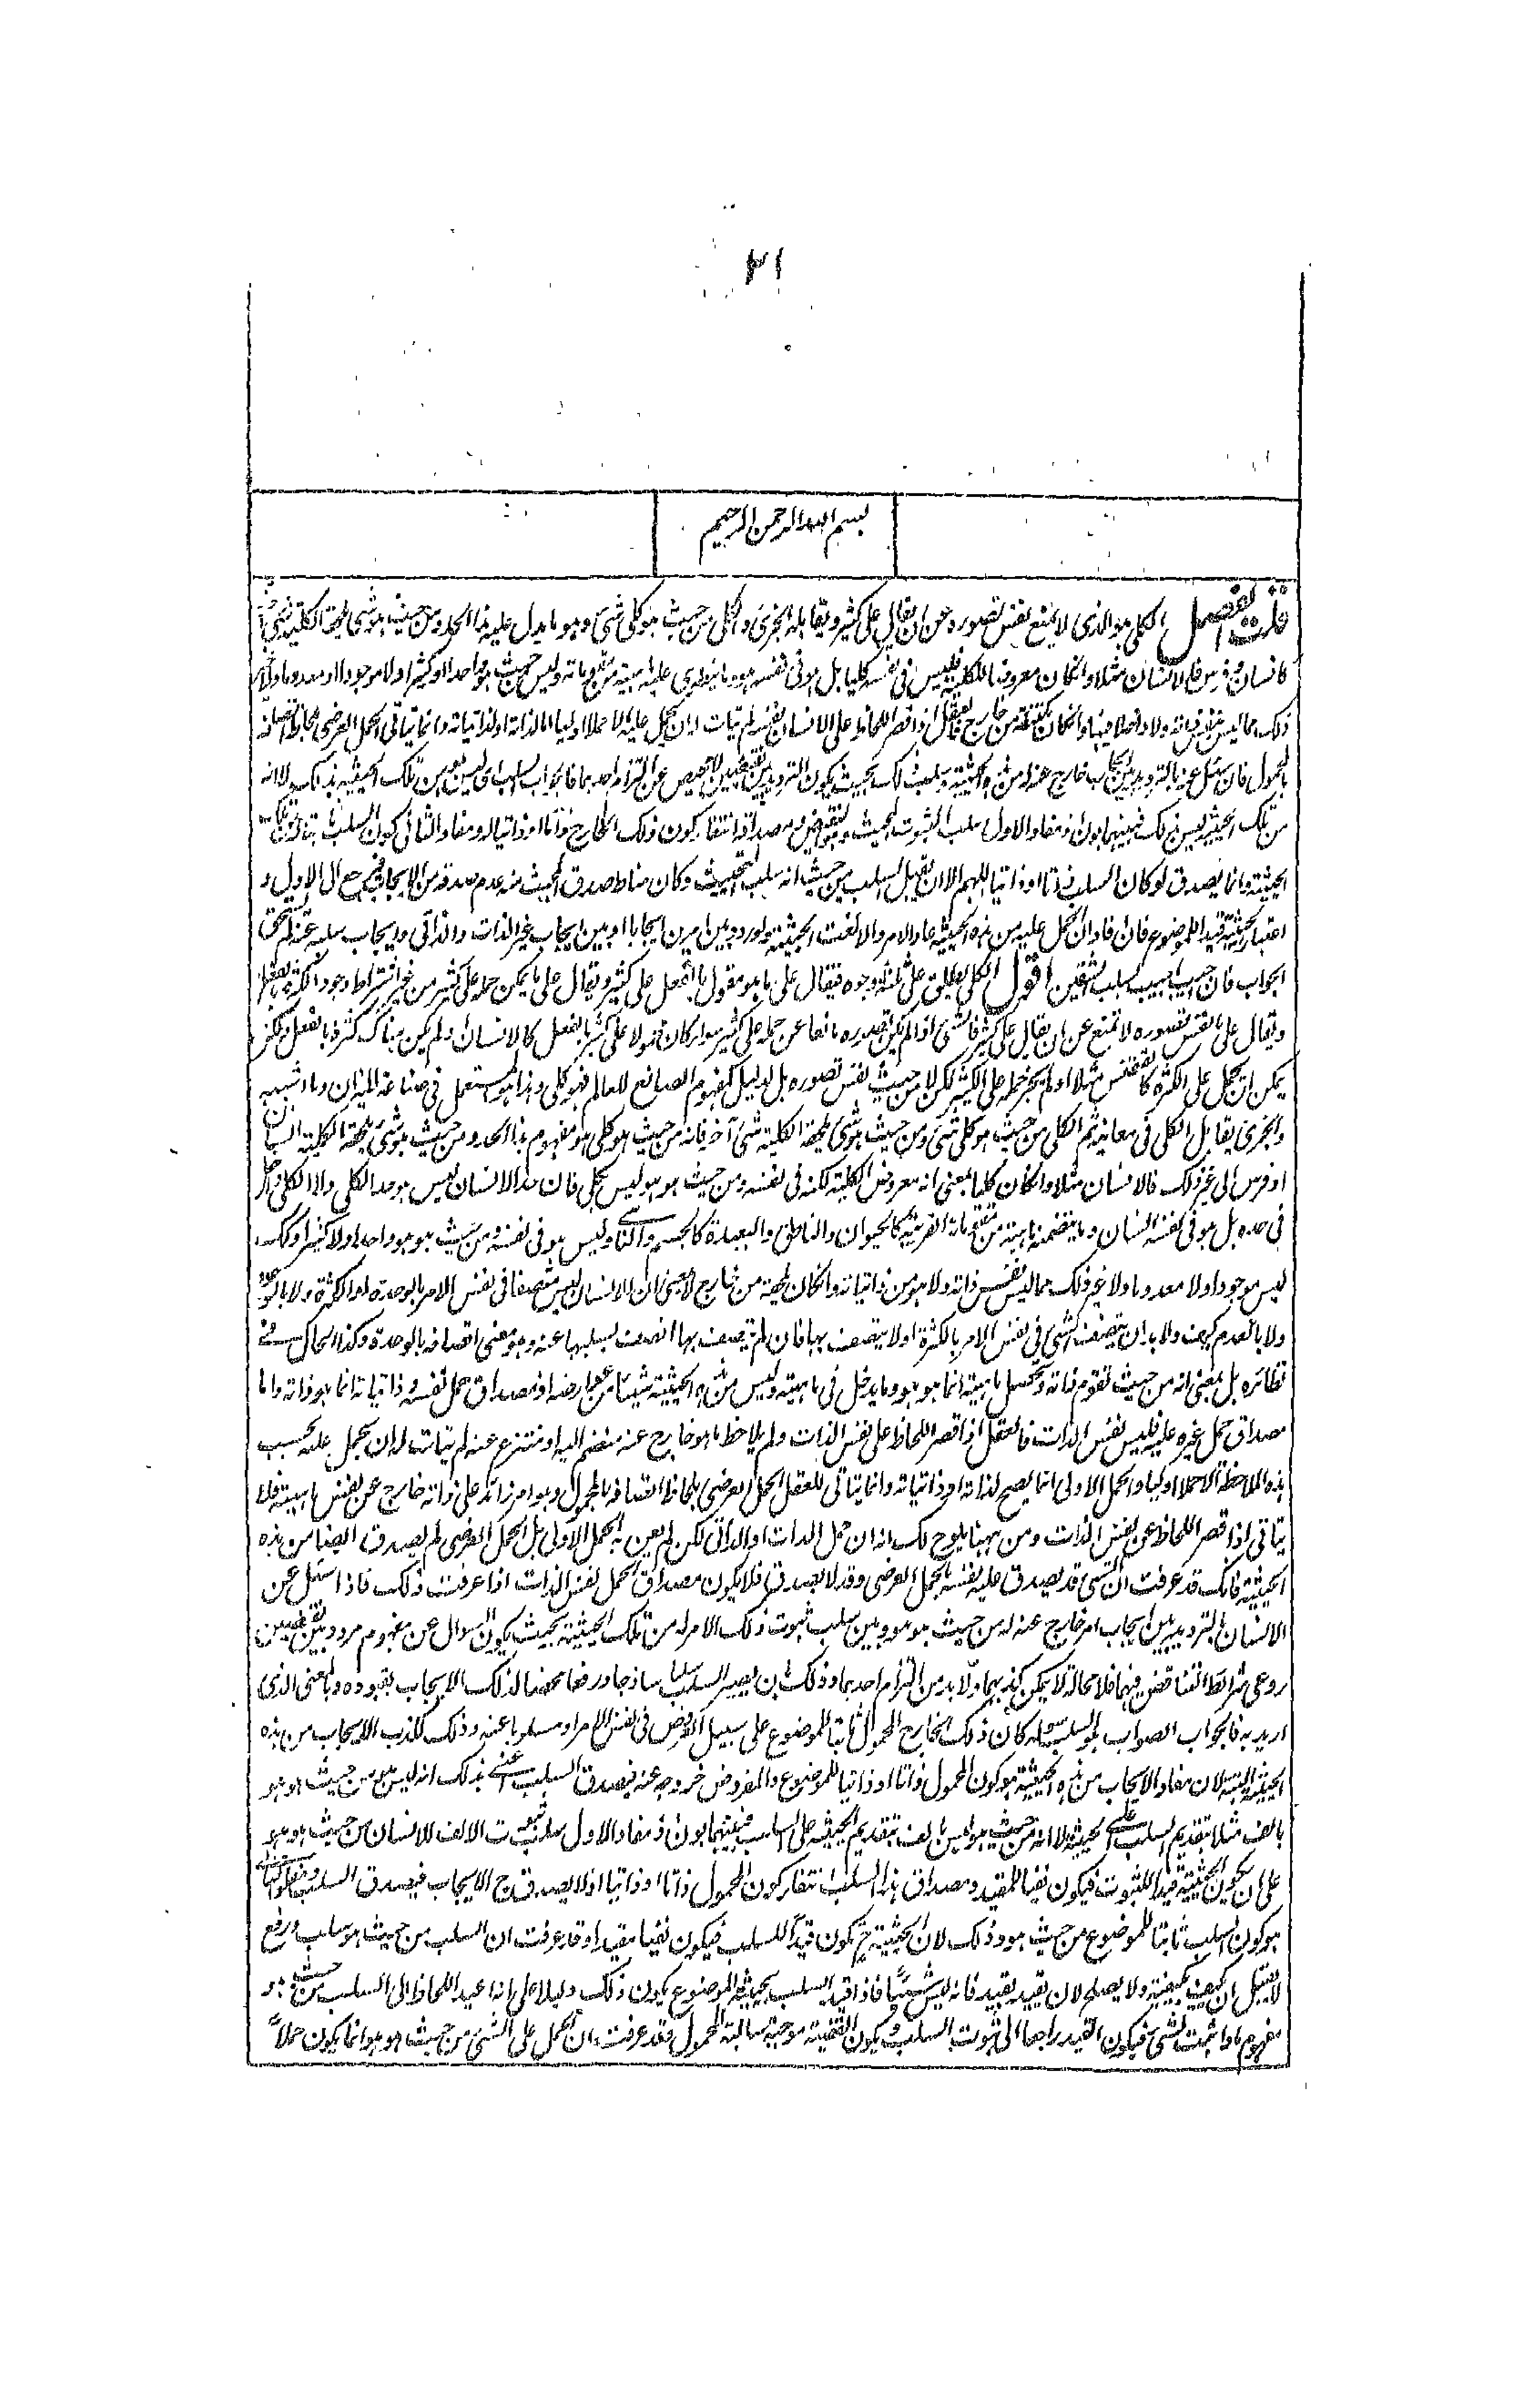 ٢١
بسم الله الرحمن الرحيم
قلت الفصل الكلي هو الذي لا يمنع نفس تصوره عن ان يقال على كثير ويقابله الجزئي والكلي من حيث هو كلي شيء وهو ما يدل عليه هذا الحد ومن حيث هو شيء تلحقه الكلية شيء
كانسان وفرس فالانسان مثلا وان كان معروضا للكلية فليس في نفسه كليا بل هو في نفسه وليس من حيث هو واحدا او كثيرا ولا موجودا او معدوما ولا
ذلك مما ليس ولا داخلا فيها وان كان من خارج فالعقل اذا قصر اللحاظ على الانسان نفسه لم يتأت ان يحمل عليه الا حملا اوليا اما لذاته او لذاتياته وانما يتأتى الحمل العرضي بلحاظ اتصافه
بالمحمول فان سئل عنه بالترديد بين ايجاب خارج عنه له من هذه الحيثية وسلب ذلك بحيث يكون الترديد بين نقيضين لا محيص عن التزام احدهما فالجواب السلب اي ليس هو من تلك الحيثية بذلك لا انه
من تلك الحيثية ليس بذلك فبينهما بون اذ مفاد الاول سلب الثبوت المحيث ومصداقه انتفاء كون ذلك الخارج ذاتا او ذاتيا له ومفاد الثاني كون السلب
الحيثية وانما يصدق لو كان السلب ذاتا او ذاتيا اللهم الا ان يقبل السلب من حيث انه سلب التحييث وكان مناط صدق المحيث منه عدم صدقه من الايجاب فيرجع الى الاول و
اعتبار الحيثية قيدا للموضوع فان افاد ان الحمل عليه من هذه الحيثية عاد الامر والا لغت الحيثية ولو ردد بين امرين ايجابا او بين ايجاب غير الذات والذاتي وايجاب سلبه عنه لم يستحق
الجواب فان اجيب اجيب بسلب الشقين اقول الكلي يطلق على ثلثة وجوه فيقال على ما هو مقول بالفعل على كثير ويقال على ما يمكن حمله على كثير من غير اشتراط وجود الكثرة بالفعل
ويقال على ما نفس تصوره لا تمنع عن ان يقال على كثير فالشيء اذا لم يكن تصوره مانعا عن حمله على كثير سواء كان مقولا على كثير بالفعل كالانسان او لم يكن هناك كثرة بالفعل ولكن
يمكن ان يحمل على الكثرة كالققنس مثلا او لم يجز حمله على الكثير لكن لا من حيث نفس تصوره بل لدليل كمفهوم الصانع للعالم فهو كلي وهذا هو المستعمل في صناعة الميزان وما اشبهه
والجزئي يقابل الكلي في معانيه ثم الكلي من حيث هو كلي شيء ومن حيث هو شيء تلحقه الكلية شيء آخر فانه من حيث هو كلي هو مفهوم هذا الحد ومن حيث هو شيء تلحقه الكلية انسان
او فرس الى غير ذلك فالانسان مثلا وان كان كليا بمعنى انه معروض الكلية لكنه في نفسه ومن حيث هو هو ليس بكلي فان حد الانسان ليس هو حد الكلي ولا الكلي داخل
في حده بل هو في نفسه انسان وما يتضمنه ماهيته من مقوماته القريبة كالحيوان والناطق والبعيدة كالجسم والنامي وليس هو في نفسه ومن حيث هو هو واحدا ولا كثيرا وكذلك
ليس موجودا ولا معدوما ولا غير ذلك مما ليس نفس ذاته ولا هو من ذاتياته وان كان تلحقه من خارج لا بمعنى ان الانسان ليس متصفا في نفس الامر بالوحدة او الكثرة ولا بالوجود
ولا بالعدم كيف ولا بد ان يتصف الشيء في نفس الامر بالكثرة او لا يتصف بها فان لم يتصف بها اتصف بسلبها عنه وهو معنى اتصافه بالوحدة وكذا الحال في
نظائره بل بمعنى انه من حيث تقوم ذاته وتحصل ماهيته انما هو هو وما يدخل في ماهيته وليس من هذه الحيثية شيئا من عوارضه اذ مصداق حمل نفسه وذاتياته انما هو ذاته واما
مصداق حمل غيره عليه فليس نفس الذات فالعقل اذا قصر اللحاظ على نفس الذات ولم يلاحظ ما هو خارج عنه منضم اليه او منتزع عنه لم يتأت له ان يحمل عليه بحسب
هذه الملاحظة الا حملا اوليا والحمل الاولي انما يصح لذاته او ذاتياته وانما يتأتى للعقل الحمل العرضي بلحاظ اتصافه بالمحمول وهو امر زائد على ذاته خارج عن نفس ماهيته فلا
يتأتى اذا قصر اللحاظ على نفس الذات ومن ههنا يلوح لك انه ان حمل الذات او الذاتي لكن لم يعن به الحمل الاولي بل الحمل العرضي لم يصدق ايضا من هذه
الحيثية فانك قد عرفت ان الشيء قد يصدق عليه نفسه بالحمل العرضي وقد لا يصدق فلا يكون مصداق الحمل نفس الذات اذا عرفت ذلك فاذا سئل عن
الانسان بالترديد بين ايجاب امر خارج عنه له من حيث هو هو وبين سلب ثبوت ذلك الامر له من تلك الحيثية بحيث يكون السوال عن مفهوم مردد بين نقيضين
روعي شرائط التناقض فيهما فلا محالة لا يمكن كذبهما ولا بد من التزام احدهما وذلك بان يصير السلب سلبا ساذجا ورفعا محضا لذلك الايجاب بقيوده وبالمعنى الذي
اريد به فالجواب الصواب هو السلب سواء كان ذلك الخارج المحمول ثابتا للموضوع على سبيل العروض في نفس الامر او مسلوبا عنه وذلك لكذب الايجاب من هذه
الحيثية البتة لان مفاد الايجاب من هذه الحيثية هو كون المحمول ذاتا او ذاتيا للموضوع والمفروض خروجه عنه فيصدق السلب اعني بذلك انه ليس هو من حيث هو هو
بالف مثلا بتقديم السلب على الحيثية لا انه من حيث هو ليس بالف بتقديم الحيثية على السلب فبينهما بون اذ مفاد الاول سلب ثبوت الالف للانسان من حيث هو هو
على ان يكون الحيثية قيدا للثبوت فيكون نفيا للمقيد ومصداق هذا السلب انتفاء كون المحمول ذاتا او ذاتيا اذ لا يصدق ح الايجاب فيصدق السلب ومفاد الثاني
هو كون السلب ثابتا للموضوع من حيث هو وذلك لان الحيثية ح تكون قيدا للسلب فيكون نفيا مقيدا وقد عرفت ان السلب من حيث هو سلب ورفع
لا يقبل ان يكيف بكيفية ولا يصلح لان يقيد بقيد فانه ليس شيئا فاذا قيد السلب بحيثية الموضوع يكون ذلك دليلا على انه اعيد اللحاظ الى السلب من حيث هو
مفهوم ما واثبت لشيء فيكون القيد راجعا الى ثبوت السلب ويكون القضية موجبة سالبة المحمول وقد عرفت ان الحمل على الشيء من حيث هو هو انما يكون حملا